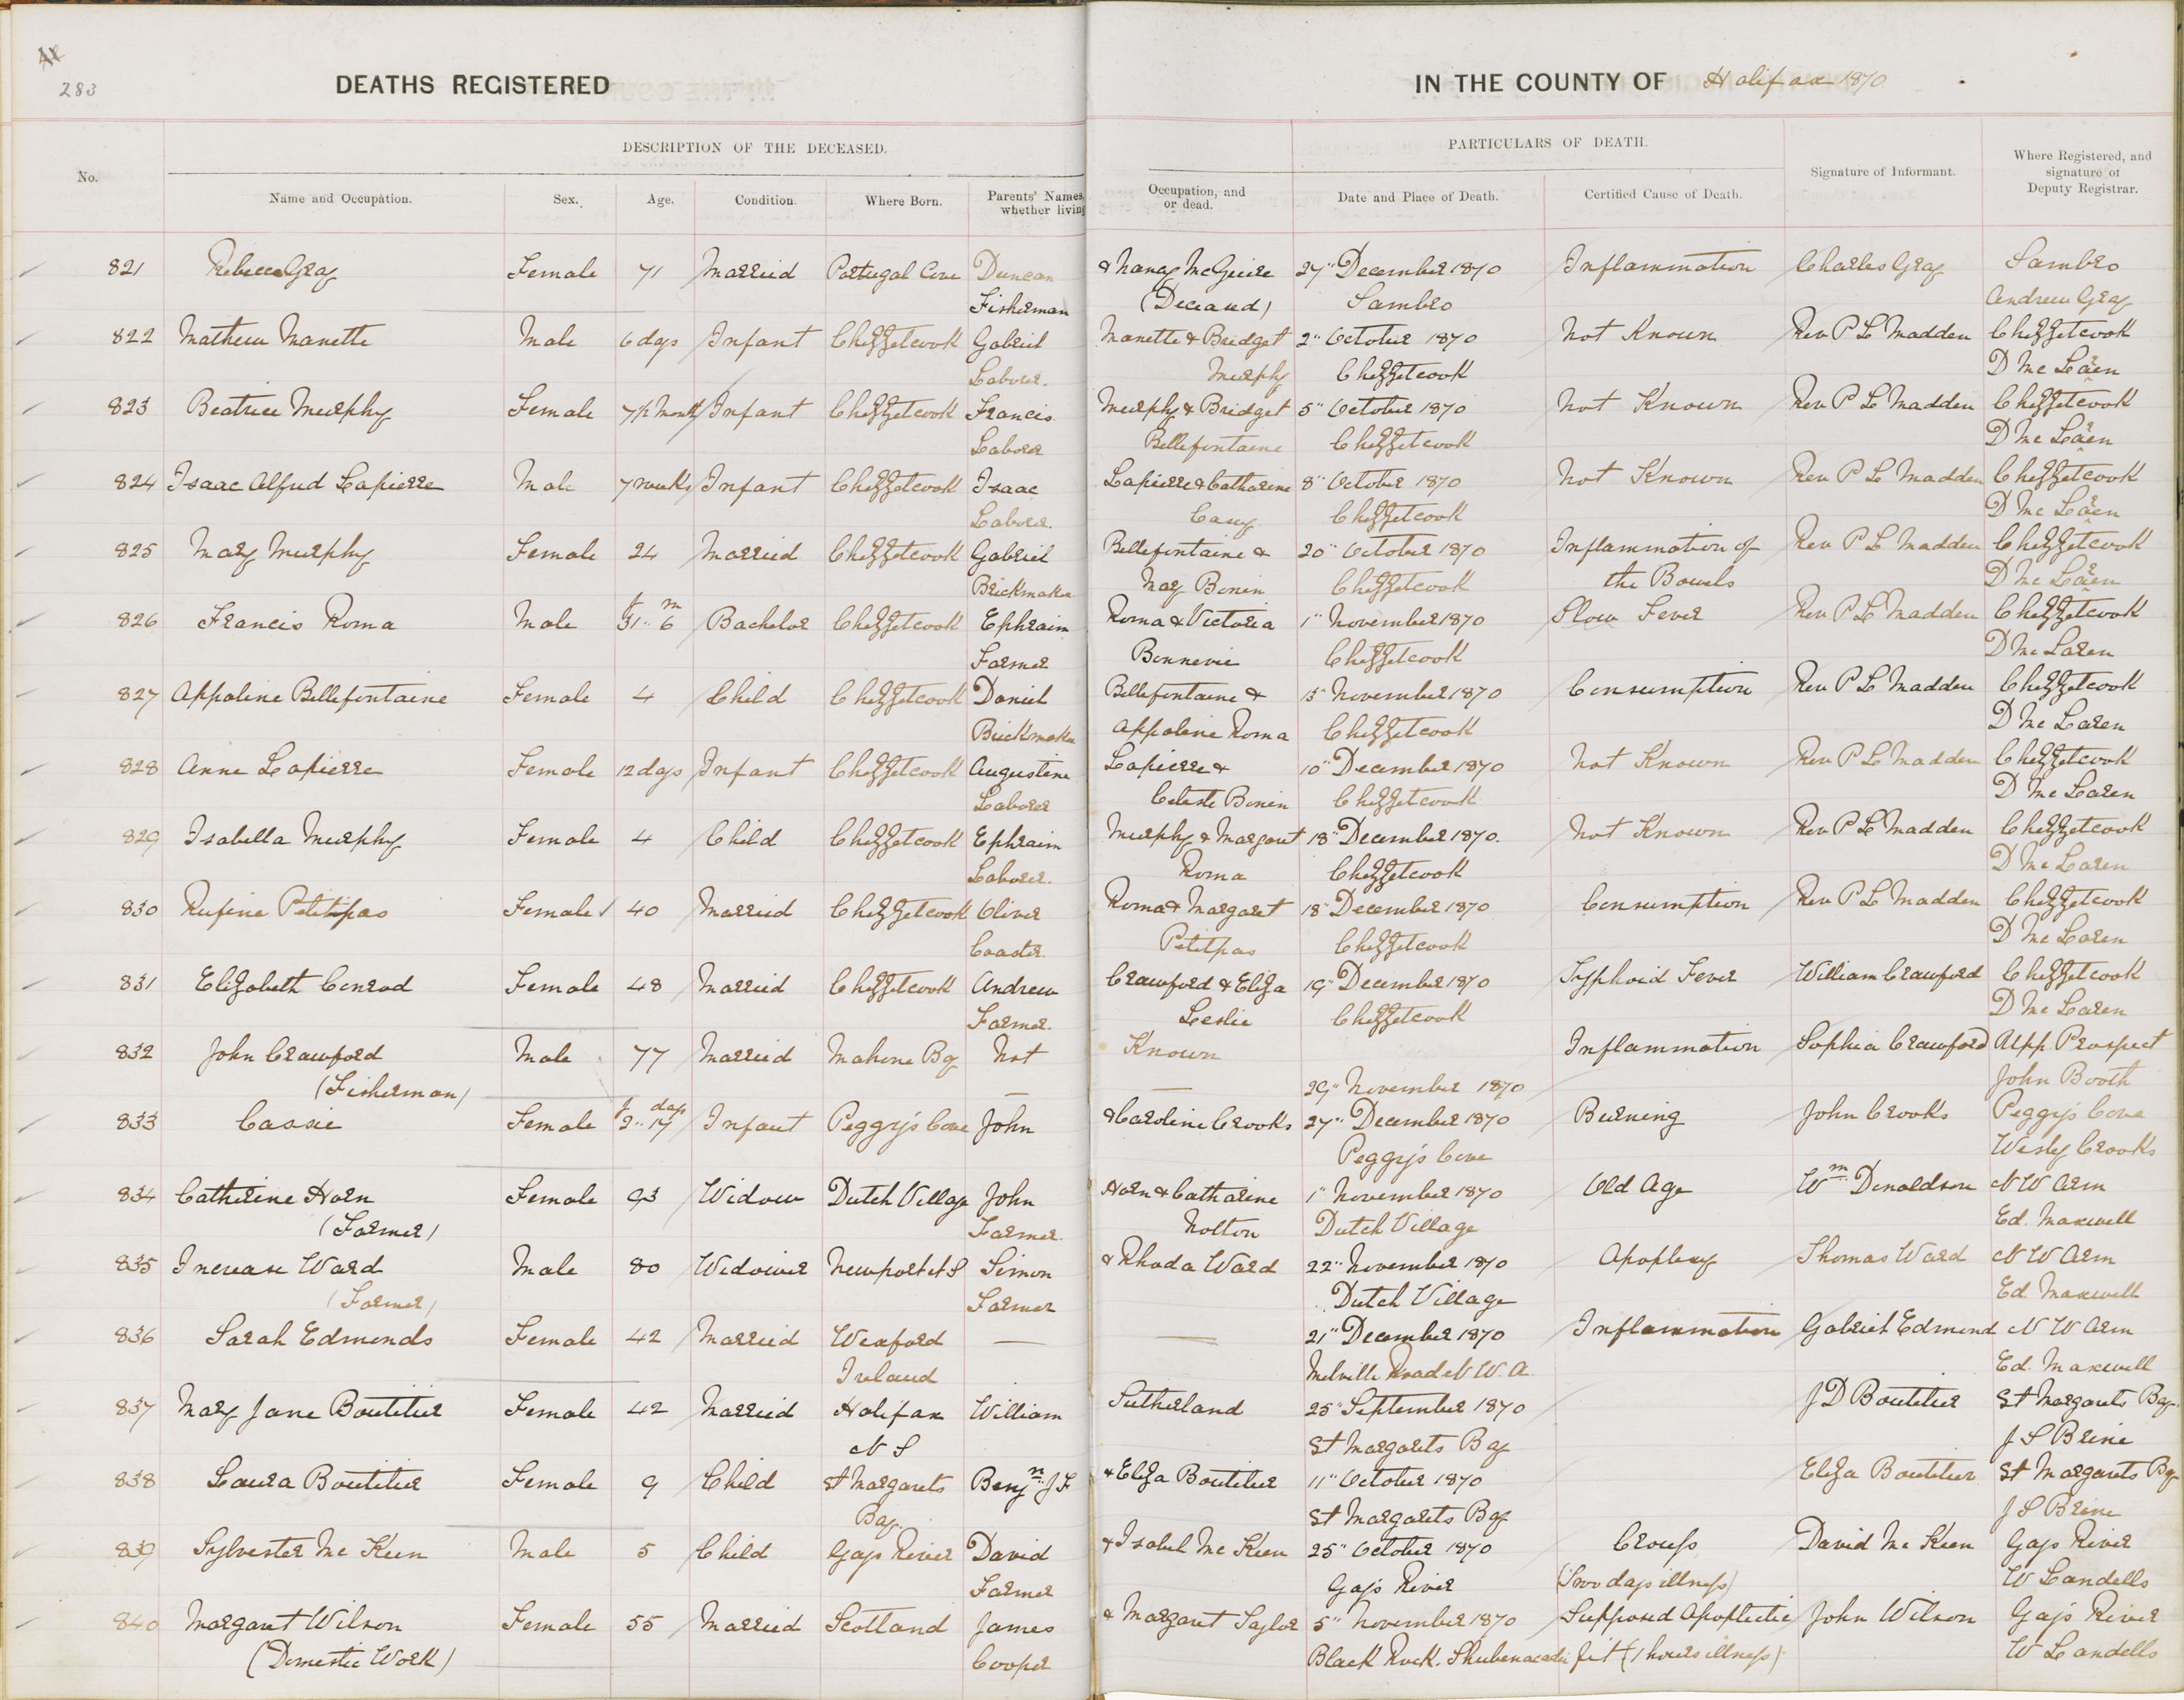 283
DEATHS REGISTERED IN THE COUNTY OF Halifax 1870
DESCRIPTION OF THE DECEASED. PARTICULARS OF DEATH.
No. Name and Occupation. Sex. Age. Condition. Where Born. Parents' Names, whether living Occupation, and or dead. Date and Place of Death. Certified Cause of Death. Signature of Informant. Where Registered, and signature of Deputy Registrar.
821 Rebecca Gray Female 71 Married Portugal Cove Duncan & Nancy McGuire 27" December 1870 Inflammation Charles Gray Sambro
Fisherman (Deceaud) Sambro Andrew Gray
822 Mathew Manette Male 6 days Infant Chezzetcook Gabriel Manette & Bridget 2" October 1870 Not Known Rev P L Madden Chezzetcook
Laborer. Murphy Chezzetcook D Mc Laren
823 Beatrice Murphy Female 7½ Months Infant Chezzetcook Francis Murphy & Bridget 5" October 1870 Not Known Rev P L Madden Chezzetcook
Laborer Bellefontaine Chezzetcook D Mc Laren
824 Isaac Alfred Lapierre Male 7 weeks Infant Chezzetcook Isaac Lapierre & Catharine 8" October 1870 Not Known Rev P L Madden Chezzetcook
Laborer. Casey Chezzetcook D Mc Laren
825 Mary Murphy Female 24 Married Chezzetcook Gabriel Bellefontaine & 20" October 1870 Inflammation of Rev P L Madden Chezzetcook
Brickmaker May Bonin Chezzetcook the Bowels D Mc Laren
826 Francis Roma Male y 31 " m 6 Bachelor Chezzetcook Ephraim Roma & Victoria 1" November 1870 Slow Fever Rev P L Madden Chezzetcook
Farmer Bonnevie Chezzetcook D Mc Laren
827 Appoline Bellefontaine Female 4 Child Chezzetcook Daniel Bellefontaine & 13" November 1870 Consumption Rev P L Madden Chezzetcook
Brickmaker Appoline Roma Chezzetcook D Mc Laren
828 Anne Lapierre Female 12 days Infant Chezzetcook Augustine Lapierre & 10" December 1870 Not Known Rev P L Madden Chezzetcook
Laborer Celeste Bonin Chezzetcook D Mc Laren
829 Isabella Murphy Female 4 Child Chezzetcook Ephraim Murphy & Margaret 18" December 1870. Not Known Rev P L Madden Chezzetcook
Laborer. Roma Chezzetcook D Mc Laren
830 Rufine Petitpas Female 40 Married Chezzetcook Oliver Roma & Margaret 18" December 1870 Consumption Rev P L Madden Chezzetcook
Coaster. Petitpas Chezzetcook D Mc Laren
831 Elizabeth Conrod Female 48 Married Chezzetcook Andrew Crawford & Eliza 19" December 1870 Typhoid Fever William Crawford Chezzetcook
Farmer. Leslie Chezzetcook D Mc Laren
832 John Crawford Male 77 Married Mahone By Not Known Inflammation Sophia Crawford Upp Prospect
(Fisherman) — — 29" November 1870 John Booth
833 Cassie Female y 2 " days 17 Infant Peggy's Cove John & Caroline Crooks 27" December 1870 Burning John Crooks Peggy's Cove
Peggy's Cove Wesley Crooks
834 Catherine Horn Female 93 Widow Dutch Village John Horn & Catharine 1" November 1870 Old Age Wm Donaldson N W Arm
(Farmer) Farmer. Nolton Dutch Village Ed. Maxwell
835 Increase Ward Male 80 Widower Newport N S Simon & Rhoda Ward 22" November 1870 Apoplexy Thomas Ward N W Arm
(Farmer) Farmer Dutch Village Ed Maxwell
836 Sarah Edmonds Female 42 Married Wexford — — 21" December 1870 Inflammation Gabriel Edmond N W Arm
Ireland Melville Road N W. A. Ed. Maxwell
837 Mary Jane Boutilier Female 42 Married Halifax William Sutherland 25" September 1870 J D Boutilier St Margarets Bay.
N S St Margarets Bay J S Brine
838 Laura Boutilier Female 9 Child St Margarets Benjn J F & Eliza Boutilier 11" October 1870 Eliza Boutilier St Margarets Bay
Bay. St Margarets Bay J S Brine
839 Sylvester Mc Keen Male 5 Child Gays River David & Isabel Mc Keen 25" October 1870 Croup David Mc Keen Gays River
Farmer Gays River (Two days illness) W Landells
840 Margaret Wilson Female 55 Married Scotland James & Margaret Taylor 5" November 1870 Supposed Apoplectic John Wilson Gays River
(Domestic Work) Cooper Black Rock. Shubenacadie fit (1 hours illness) W Landells